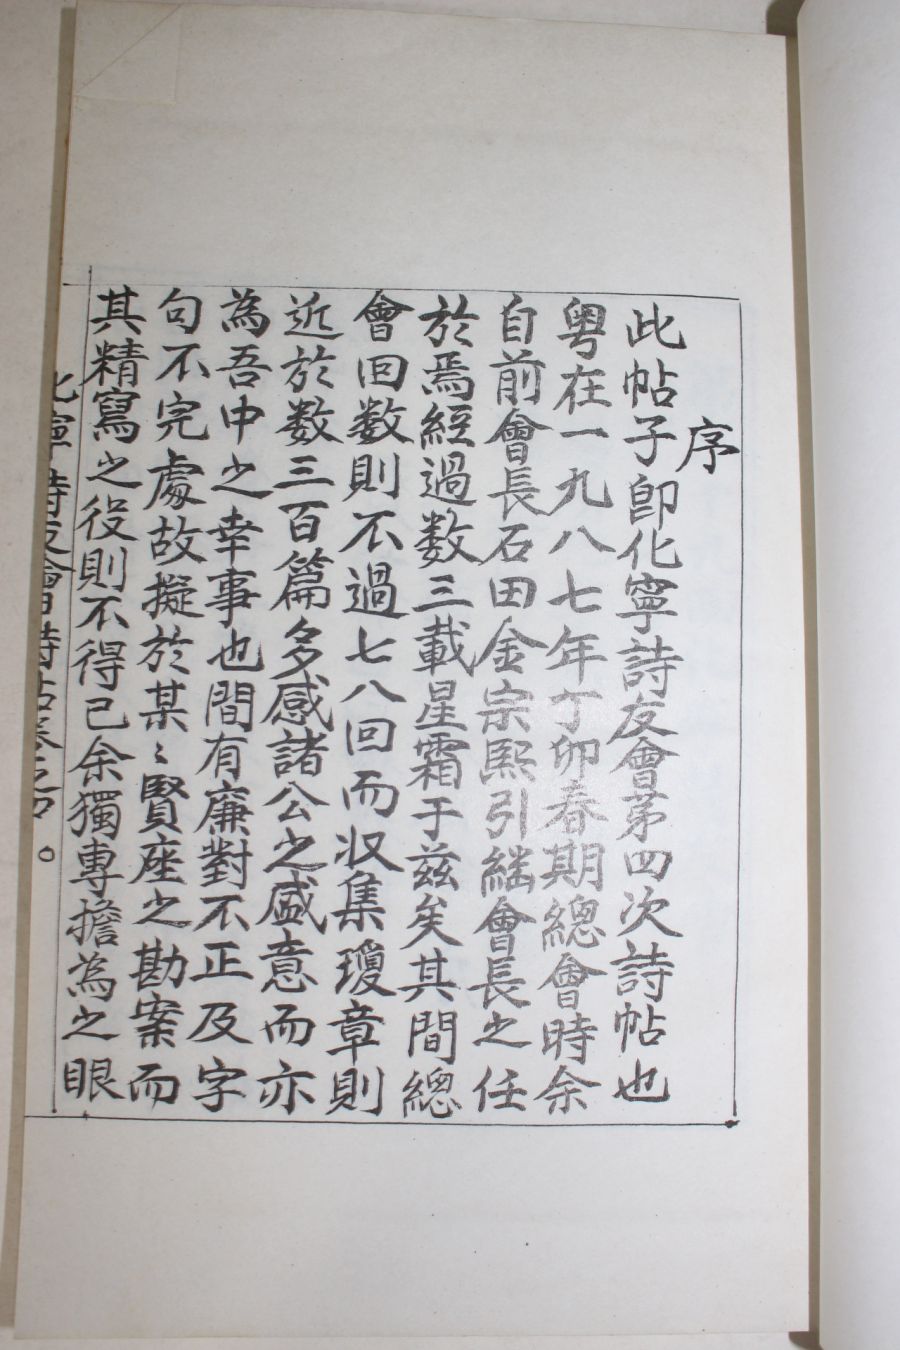 序
此帖子卽化寧詩友會第四次詩帖也
粤在一九八七年丁卯春期總會時余
自前會長石田金宗熙引継會長之任
於焉經過数三載星霜于兹矣其間總
會回数則不過七八回而収集瓊章則
近於数三百篇多感諸公之盛意而亦
為吾中之幸事也間有廉對不正及字
句不完處故擬於某〻賢座之勘案而
其精寫之役則不得已余獨專擔為之眼
化寧詩友會詩帖卷之四